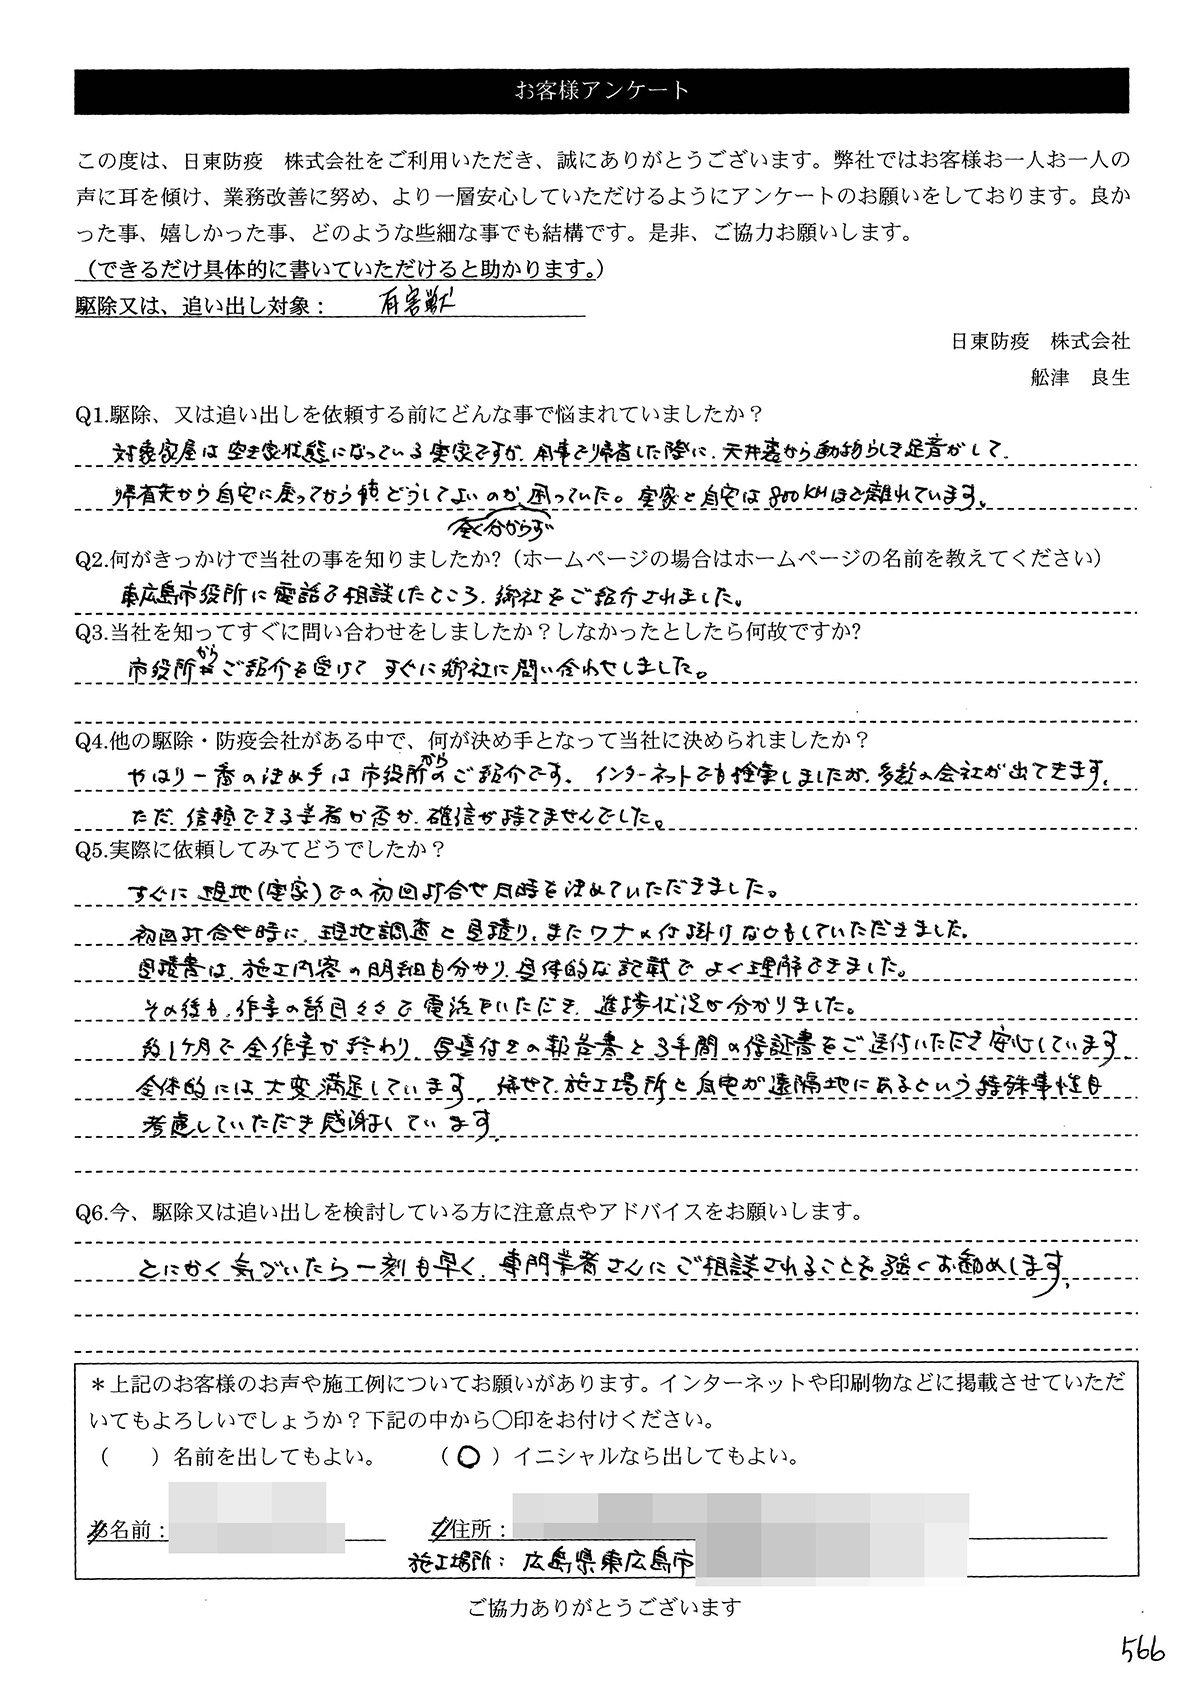 お客様アンケート
この度は、日東防疫　株式会社をご利用いただき、誠にありがとうございます。弊社ではお客様お一人お一人の
声に耳を傾け、業務改善に努め、より一層安心していただけるようにアンケートのお願いをしております。良か
った事、嬉しかった事、どのような些細な事でも結構です。是非、ご協力お願いします。
（できるだけ具体的に書いていただけると助かります。）
駆除又は、追い出し対象： 有害獣
日東防疫　株式会社
舩津　良生
Q1.駆除、又は追い出しを依頼する前にどんな事で悩まれていましたか？
対象家屋は空き家状態になっている実家ですが、用事で帰省した際に、天井裏から動物らしき足音がして、
帰省先から自宅に戻ってから どうしてよいのか 困っていた。実家と自宅は800KMほど離れています。
全く分からず
Q2.何がきっかけで当社の事を知りましたか?（ホームページの場合はホームページの名前を教えてください）
東広島市役所に電話で相談したところ、御社をご紹介されました。
Q3.当社を知ってすぐに問い合わせをしましたか？しなかったとしたら何故ですか?
市役所からご紹介を受けて すぐに御社に問い合わせしました。
Q4.他の駆除・防疫会社がある中で、何が決め手となって当社に決められましたか？
やはり一番の決め手は市役所からのご紹介です。インターネットでも検索しましたが、多数の会社が出てきます。
ただ、信頼できる業者か否か、確信が持てませんでした。
Q5.実際に依頼してみてどうでしたか？
すぐに現地(実家)での初回打合せ日時を決めていただきました。
初回打合せ時に、現地調査と見積り、またワナの仕掛けなどもしていただきました。
見積書は、施工内容の明細も分かり、具体的な記載でよく理解できました。
その後も、作業の節目々々で電話をいただき、進捗状況が分かりました。
約1ヶ月で全作業が終わり、写真付きの報告書と3年間の保証書をご送付いただき安心しています。
全体的には大変満足しています。併せて、施工場所と自宅が遠隔地にあるという特殊事情も
考慮していただき感謝しています。
Q6.今、駆除又は追い出しを検討している方に注意点やアドバイスをお願いします。
とにかく気づいたら一刻も早く、専門業者さんにご相談されることを強くお勧めします。
＊上記のお客様のお声や施工例についてお願いがあります。インターネットや印刷物などに掲載させていただ
いてもよろしいでしょうか？下記の中から〇印をお付けください。
（　　）名前を出してもよい。　　（ ○ ）イニシャルなら出してもよい。
お名前：　　ご住所：
施工場所：広島県東広島市
ご協力ありがとうございます
566